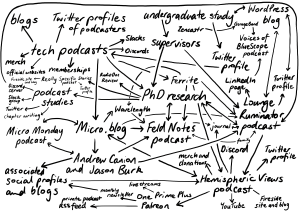 blogs
Twitter profiles
of podcasters
undergraduate study
WordPress
blog
Zencastr
Songwhip
tech podcasts
Slacks
Discords
supervisors
Voices of
BlueScope
podcast
merch
memberships
Twitter
profile
official websites
Really Specific Stories
Ferrite
LinkedIn
page
Twitter
profile
podcast
studies
PhD research
Lounge
Ruminator
podcast
Twitter
Wavelength
chapter writing
Micro Monday
podcast
Micro.blog
Field Notes
podcast
journal
Discord
Twitter
profile
Andrew Canion
and Jason Burk
merch and
donations
associated
social profiles
and blogs
Hemispheric Views
podcast
livestreams
monthly
newsletter
One Prime Plus
private podcast
RSS feed
Patreon
YouTube
Fireside
site and blog